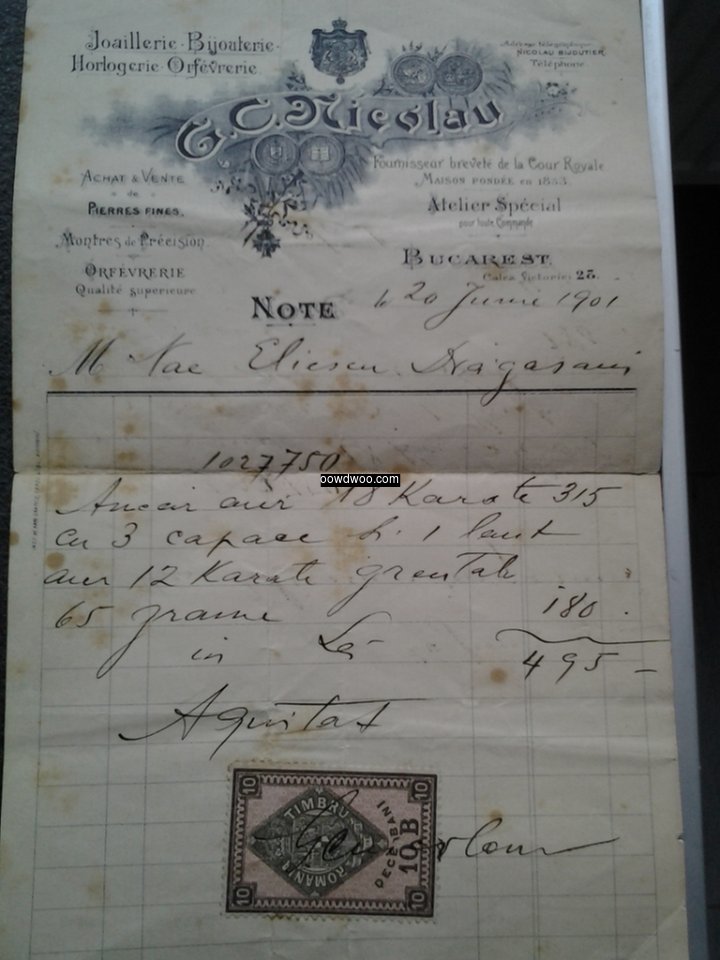 Joaillerie-Bijouterie-
Horlogerie-Orfèvrerie
Adresse télégraphique:
NICOLAU BIJOUTIER
Téléphone
G.C. Nicolau
Fournisseur breveté de la Cour Royale
MAISON FONDÉE en 1853.
ACHAT & VENTE
de
PIERRES FINES.
Atelier Spécial
pour toute Commande
Montres de Précision
BUCAREST
Calea Victoriei 25.
ORFÉVRERIE
Qualité supérieure
NOTE le 20 Junie 1901
M Nae Eliescu Drăgăşani
1027750
oowdwoo.com
aur 18 Karate 315
cu 3 capace și 1 lanț
aur 12 Karate
65 grame 180.
in Lei 495 –
Aquitat
10 10
TIMBRU
ROMANIA
DECEI BANI
10 B
10 10